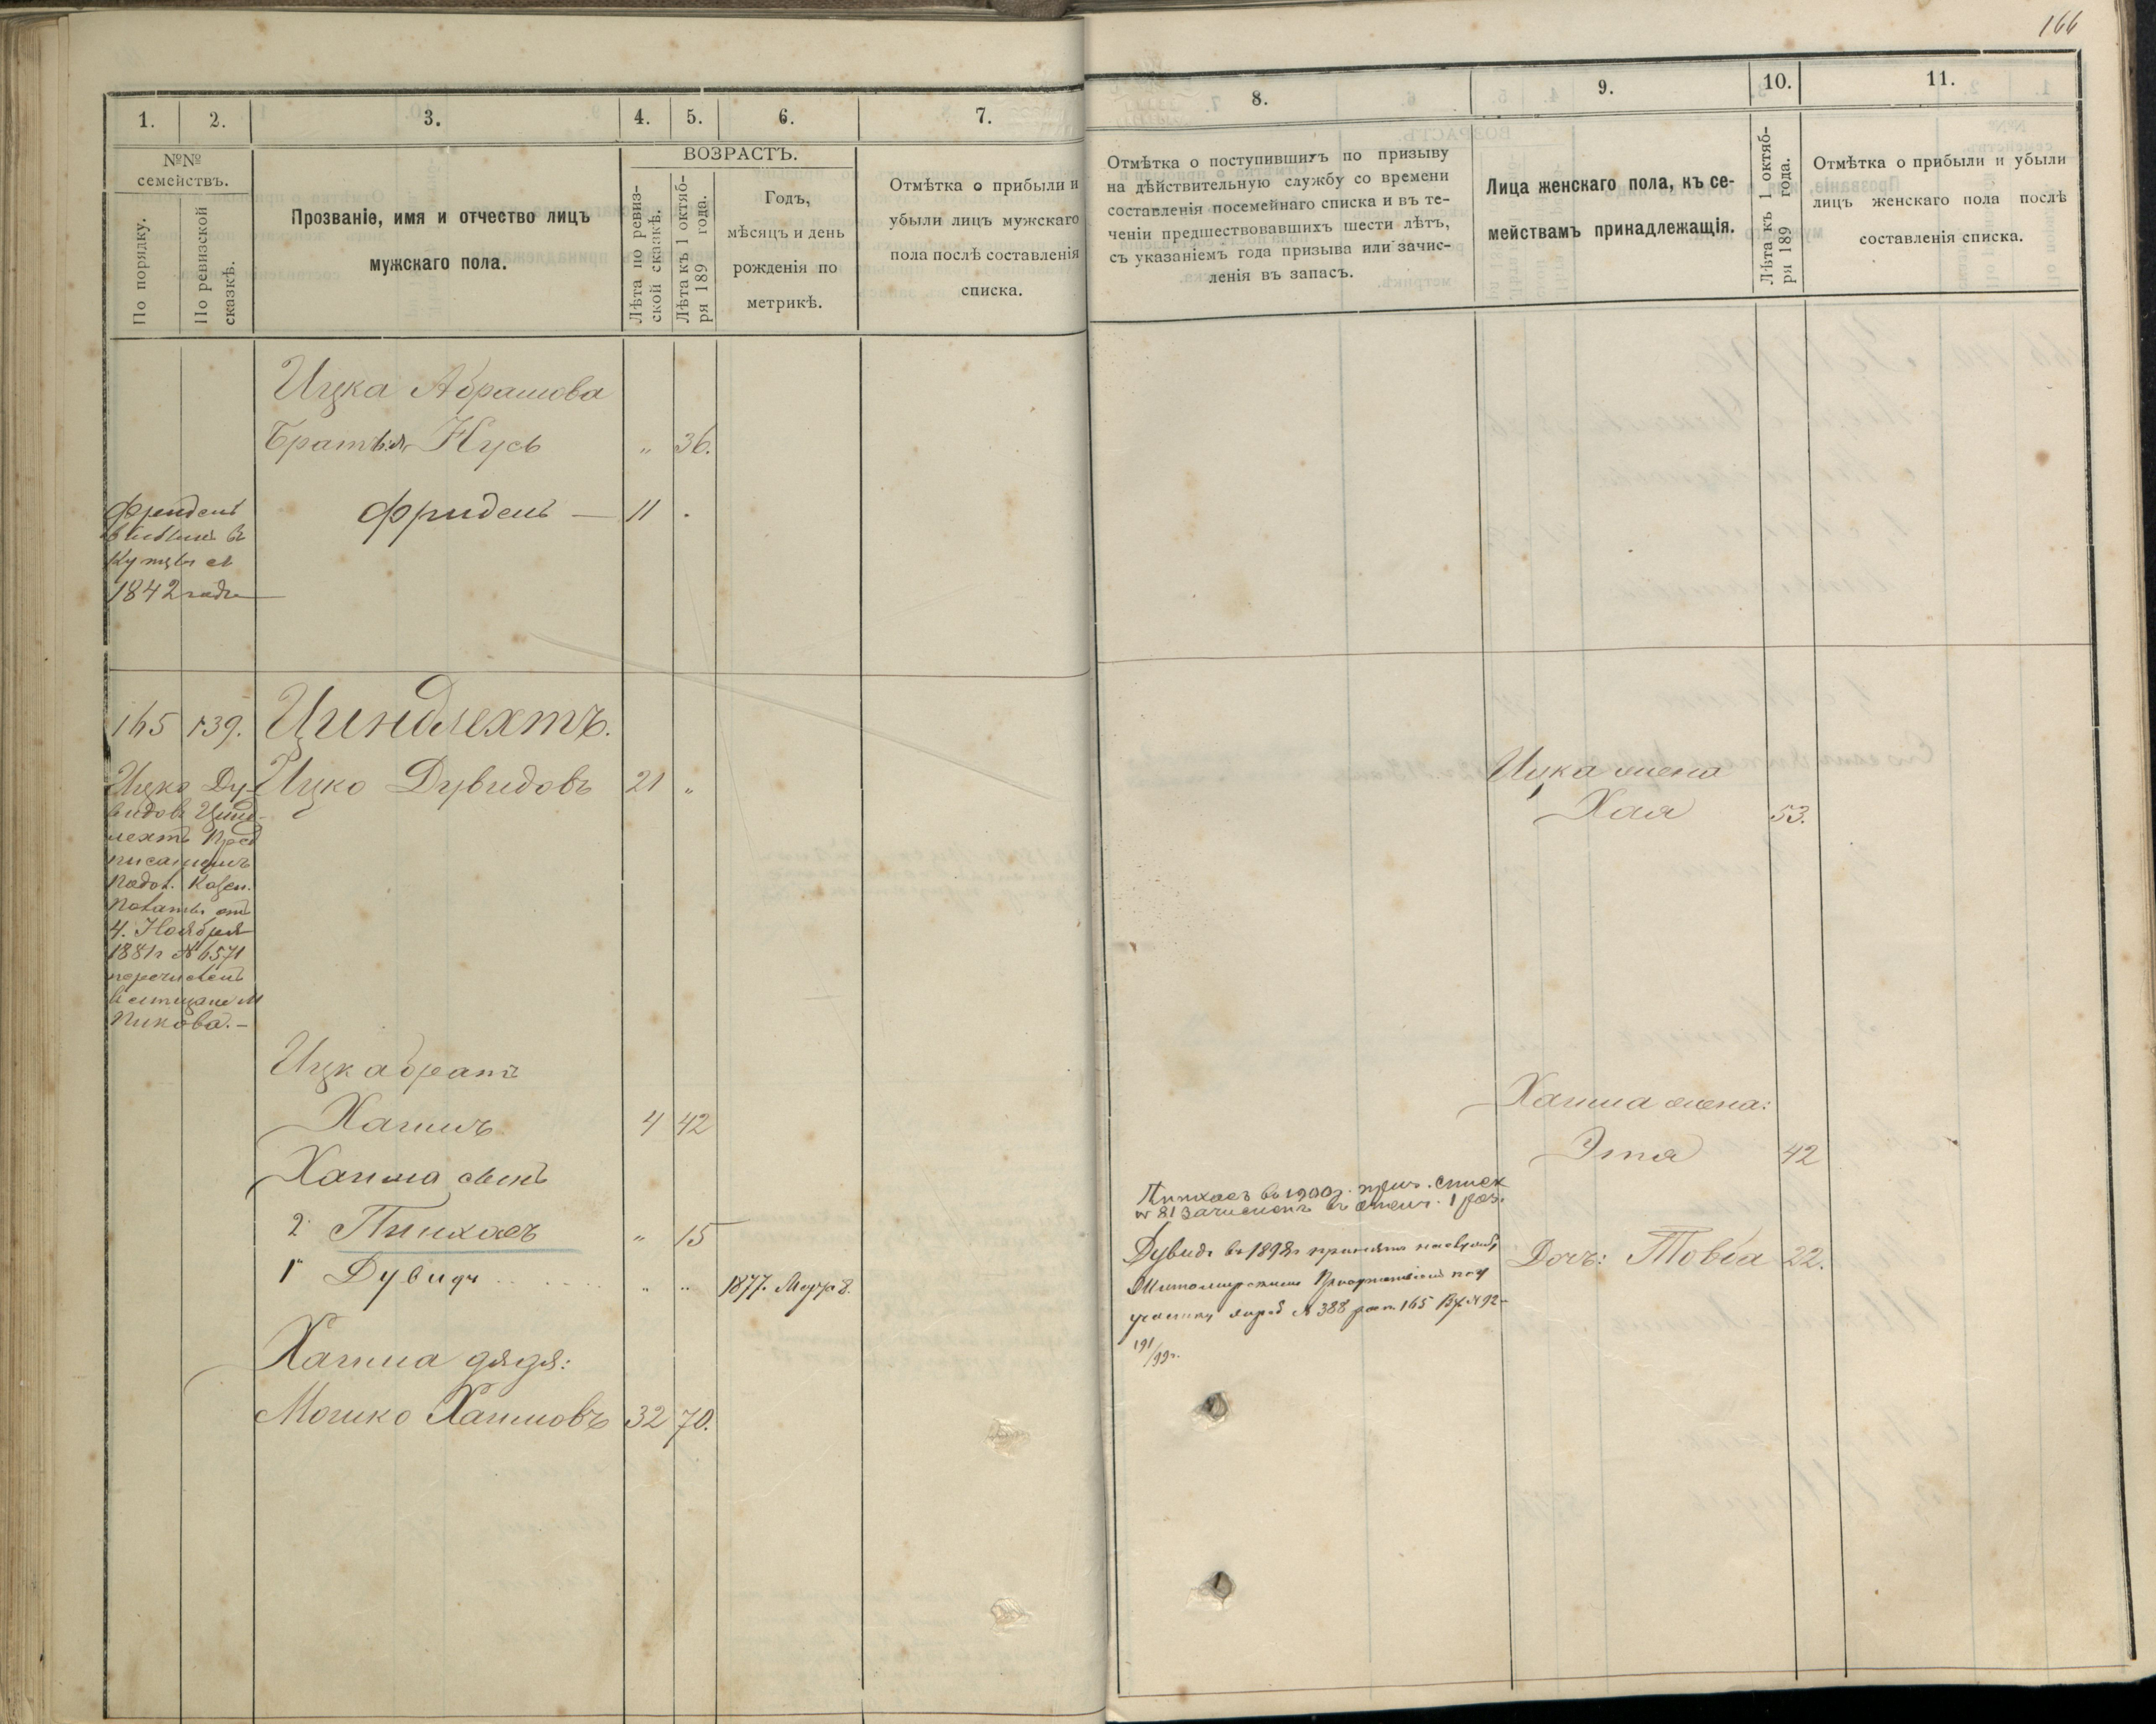 166
1.
2.
3.
4.
5.
6.
7.
№№ семействъ.
По порядку.
По ревизской сказкѣ.
Прозваніе, имя и отчество лицъ
мужскаго пола.
ВОЗРАСТЪ.
Лѣта по ревиз-
ской сказкѣ.
Лѣта къ 1 октяб-
ря 189 года.
Годъ,
мѣсяцъ и день
рожденія по
метрикѣ.
Отмѣтка о прибыли и
убыли лицъ мужскаго
пола послѣ составленія
списка.
Ицка Абрамова
Братья Нусь " 36.
Фридель — 11 .
Фридель
въ
Купцы съ
1842 года
165 139. Циндлехтъ.
Ицко Дувидовъ 21 "
Ицко Ду-
видовъ Цинд-
лехтъ Пред
писаніемъ
Подол. Казен.
Палаты отъ
4. Ноября
1881 г №6571
перечисленъ
в мещане м
Пикова.—
Ицка братъ
Хаимъ 4 42
Хаима сынъ
2 Пинхасъ " 15
1 Дувидъ " " 1877. 8.
Хаима дядя:
Мошко Хаимовъ 32 70.
8.
9.
10.
11.
Отмѣтка о поступившихъ по призыву
на дѣйствительную службу со времени
составленія посемейнаго списка и въ те-
ченіи предшествовавшихъ шести лѣтъ,
съ указаніемъ года призыва или зачис-
ленія въ запасъ.
Лица женскаго пола, къ се-
мействамъ принадлежащія.
Лѣта къ 1 октяб-
ря 189 года.
Отмѣтка о прибыли и убыли
лицъ женскаго пола послѣ
составленія списка.
Ицка жена
Хая 53.
Хаима жена:
Этя 42
Пинхасъ въ 1900 г. приз. списк
№ 81 зачисленъ въ ополч. 1 раз.
Дувидъ въ 1898 г принятъ на службу
Житомирскимъ
участку жереб № 388 165 № 92—
191/99 г.
Дочь: Товба 22.